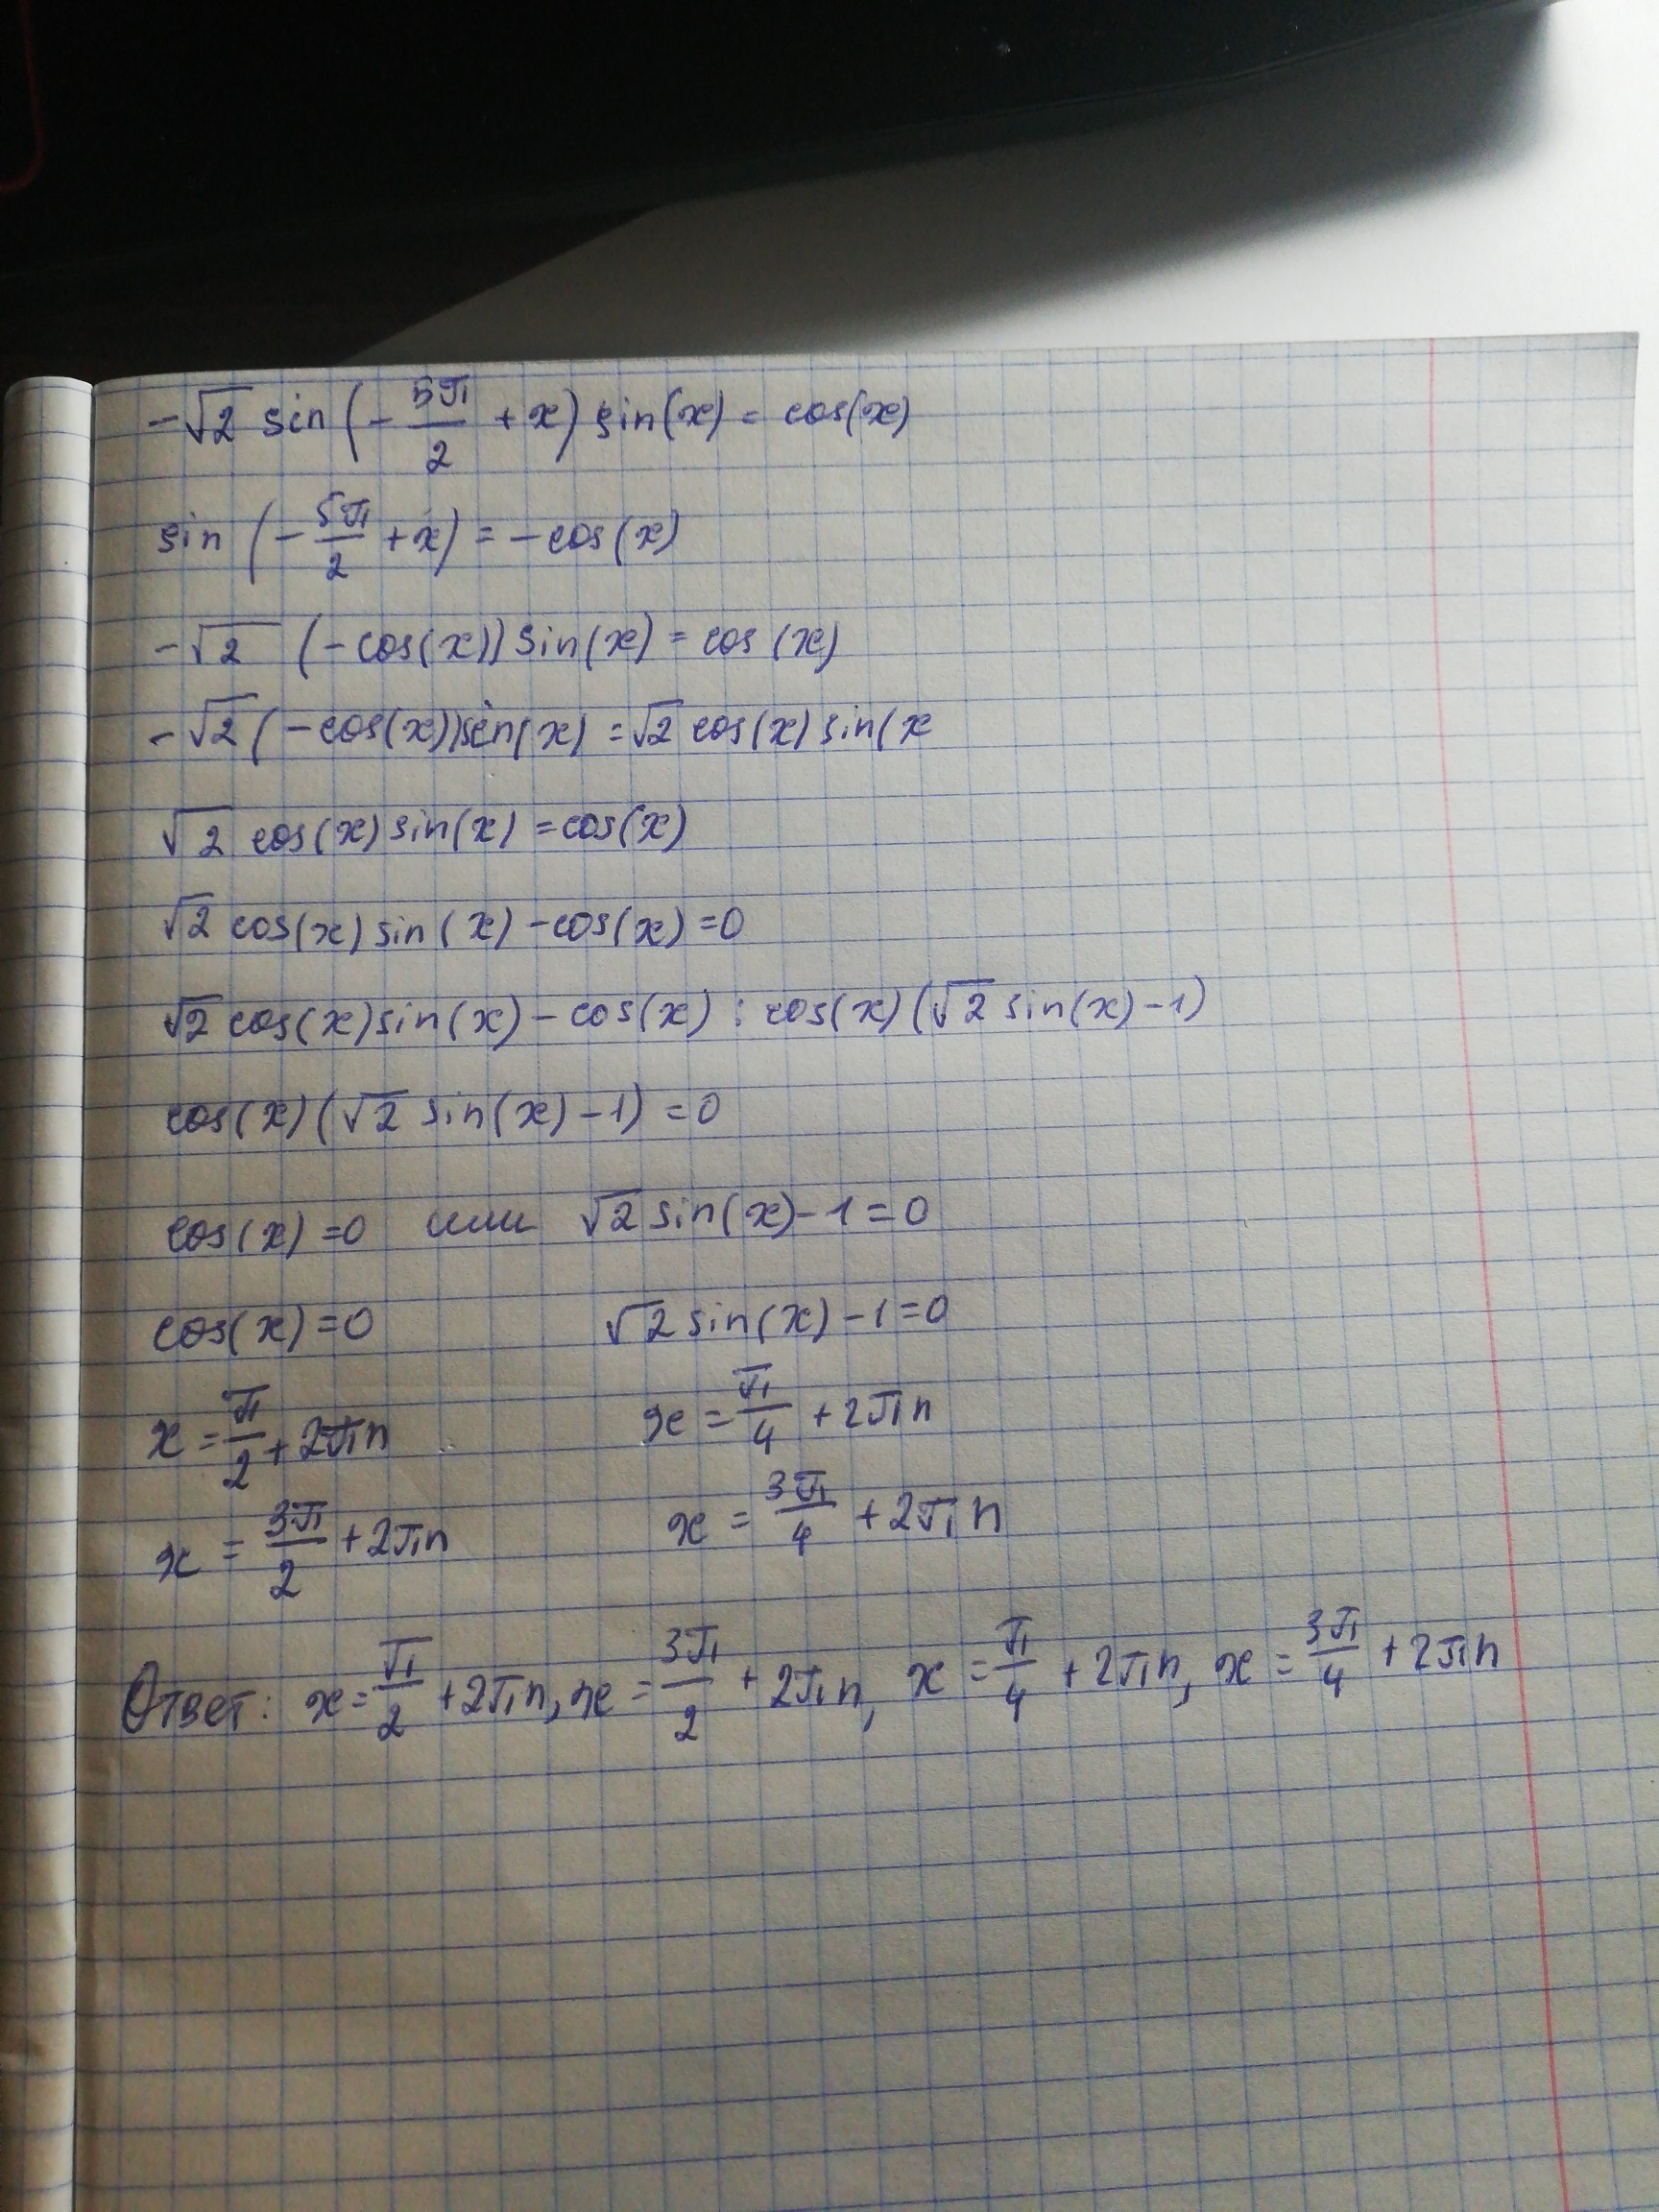 -√2 sin(-5π/2 + x) sin(x) = cos(x)
sin(-5π/2 + x) = -cos(x)
-√2 (-cos(x)) sin(x) = cos(x)
-√2(-cos(x))sin(x) = √2 cos(x) sin(x
√2 cos(x) sin(x) = cos(x)
√2 cos(x) sin(x) - cos(x) = 0
√2 cos(x) sin(x) - cos(x) : cos(x)(√2 sin(x) - 1)
cos(x)(√2 sin(x) - 1) = 0
cos(x) = 0 или √2 sin(x) - 1 = 0
cos(x) = 0 √2 sin(x) - 1 = 0
x = π/2 + 2πn x = π/4 + 2πn
x = 3π/2 + 2πn x = 3π/4 + 2πn
Ответ: x = π/2 + 2πn, x = 3π/2 + 2πn, x = π/4 + 2πn, x = 3π/4 + 2πn